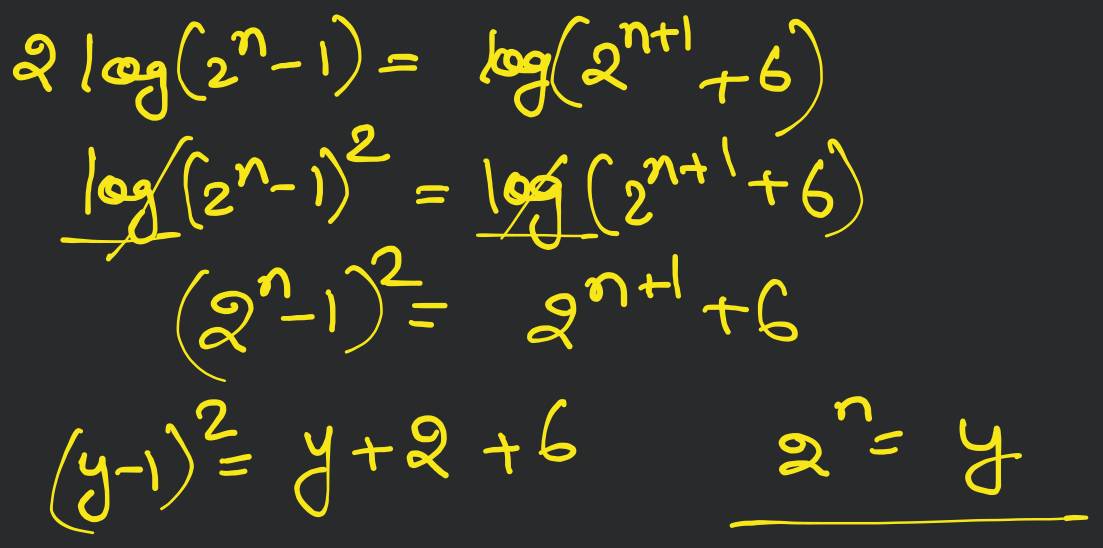 2 log(2ⁿ-1) = log(2ⁿ⁺¹ + 6)
log(2ⁿ-1)² = log(2ⁿ⁺¹ + 6)
(2ⁿ-1)² = 2ⁿ⁺¹ + 6
(y-1)² = y + 2 + 6 2ⁿ = y